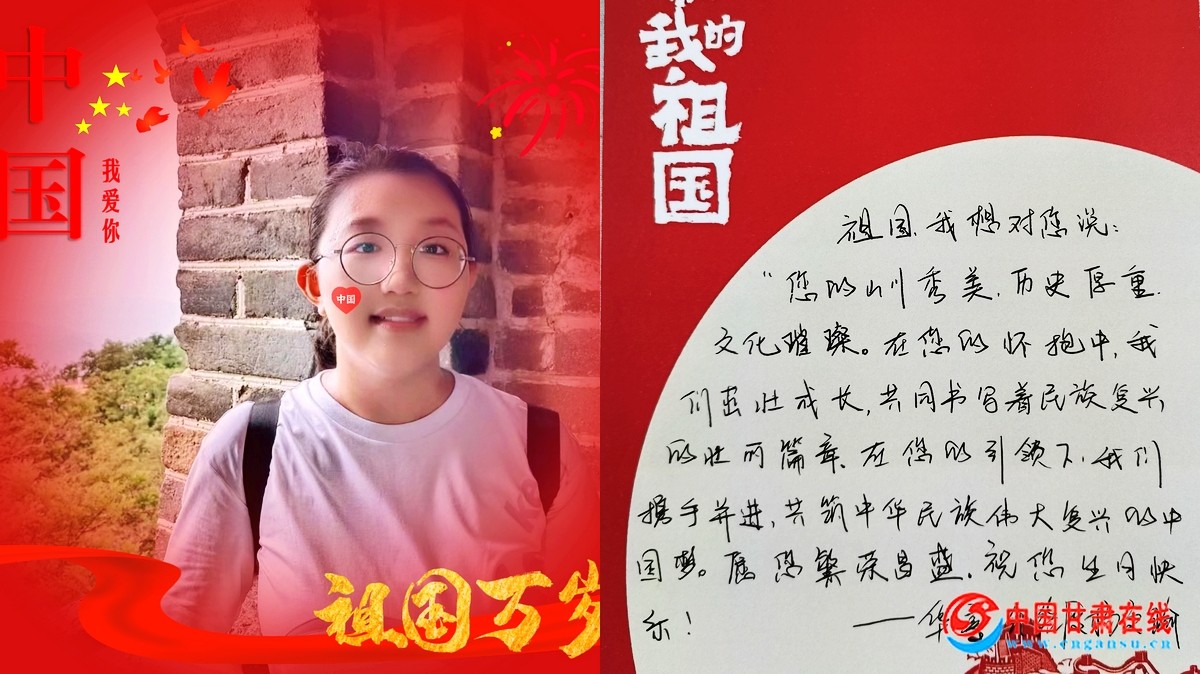 中国
我爱你
中国
祖国万岁
我的
祖国
祖国,我想对您说:
"您的山川秀美,历史厚重,
文化璀璨。在您的怀抱中,我
们茁壮成长,共同书写着民族复兴
的壮丽篇章。在您的引领下,我们
携手并进,共筑中华民族伟大复兴的中
国梦。愿您繁荣昌盛,祝您生日快
乐!
——华
中国甘肃在线
www.cngansu.cn